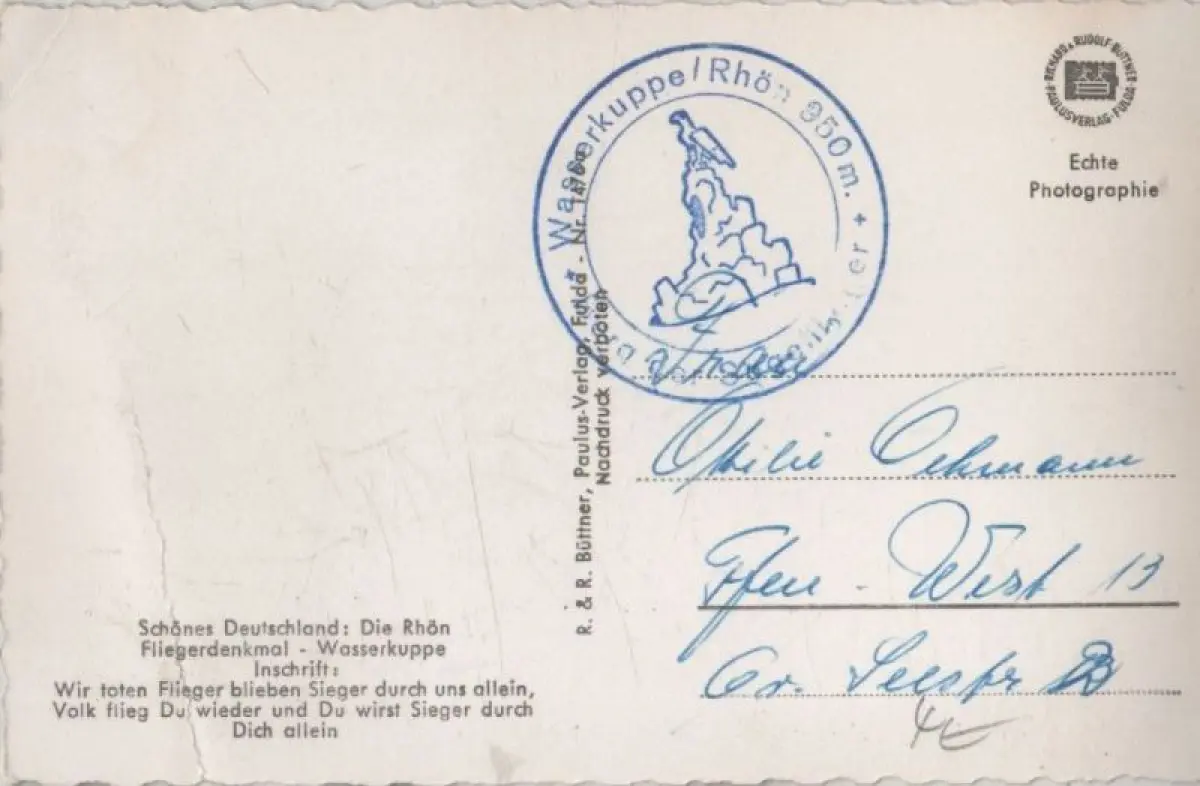 Wasserkuppe/Rhön 950 m. +
RICHARD & RUDOLF BÜTTNER
PAULUSVERLAG · FULDA
Echte
Photographie
R. & R. Büttner, Paulus-Verlag, Fulda - Nr.
Nachdruck verboten
Frau
Ottilie Oehmann
Ffm - West 13
Gr. Seestr
Schönes Deutschland: Die Rhön
Fliegerdenkmal - Wasserkuppe
Inschrift:
Wir toten Flieger blieben Sieger durch uns allein,
Volk flieg Du wieder und Du wirst Sieger durch
Dich allein